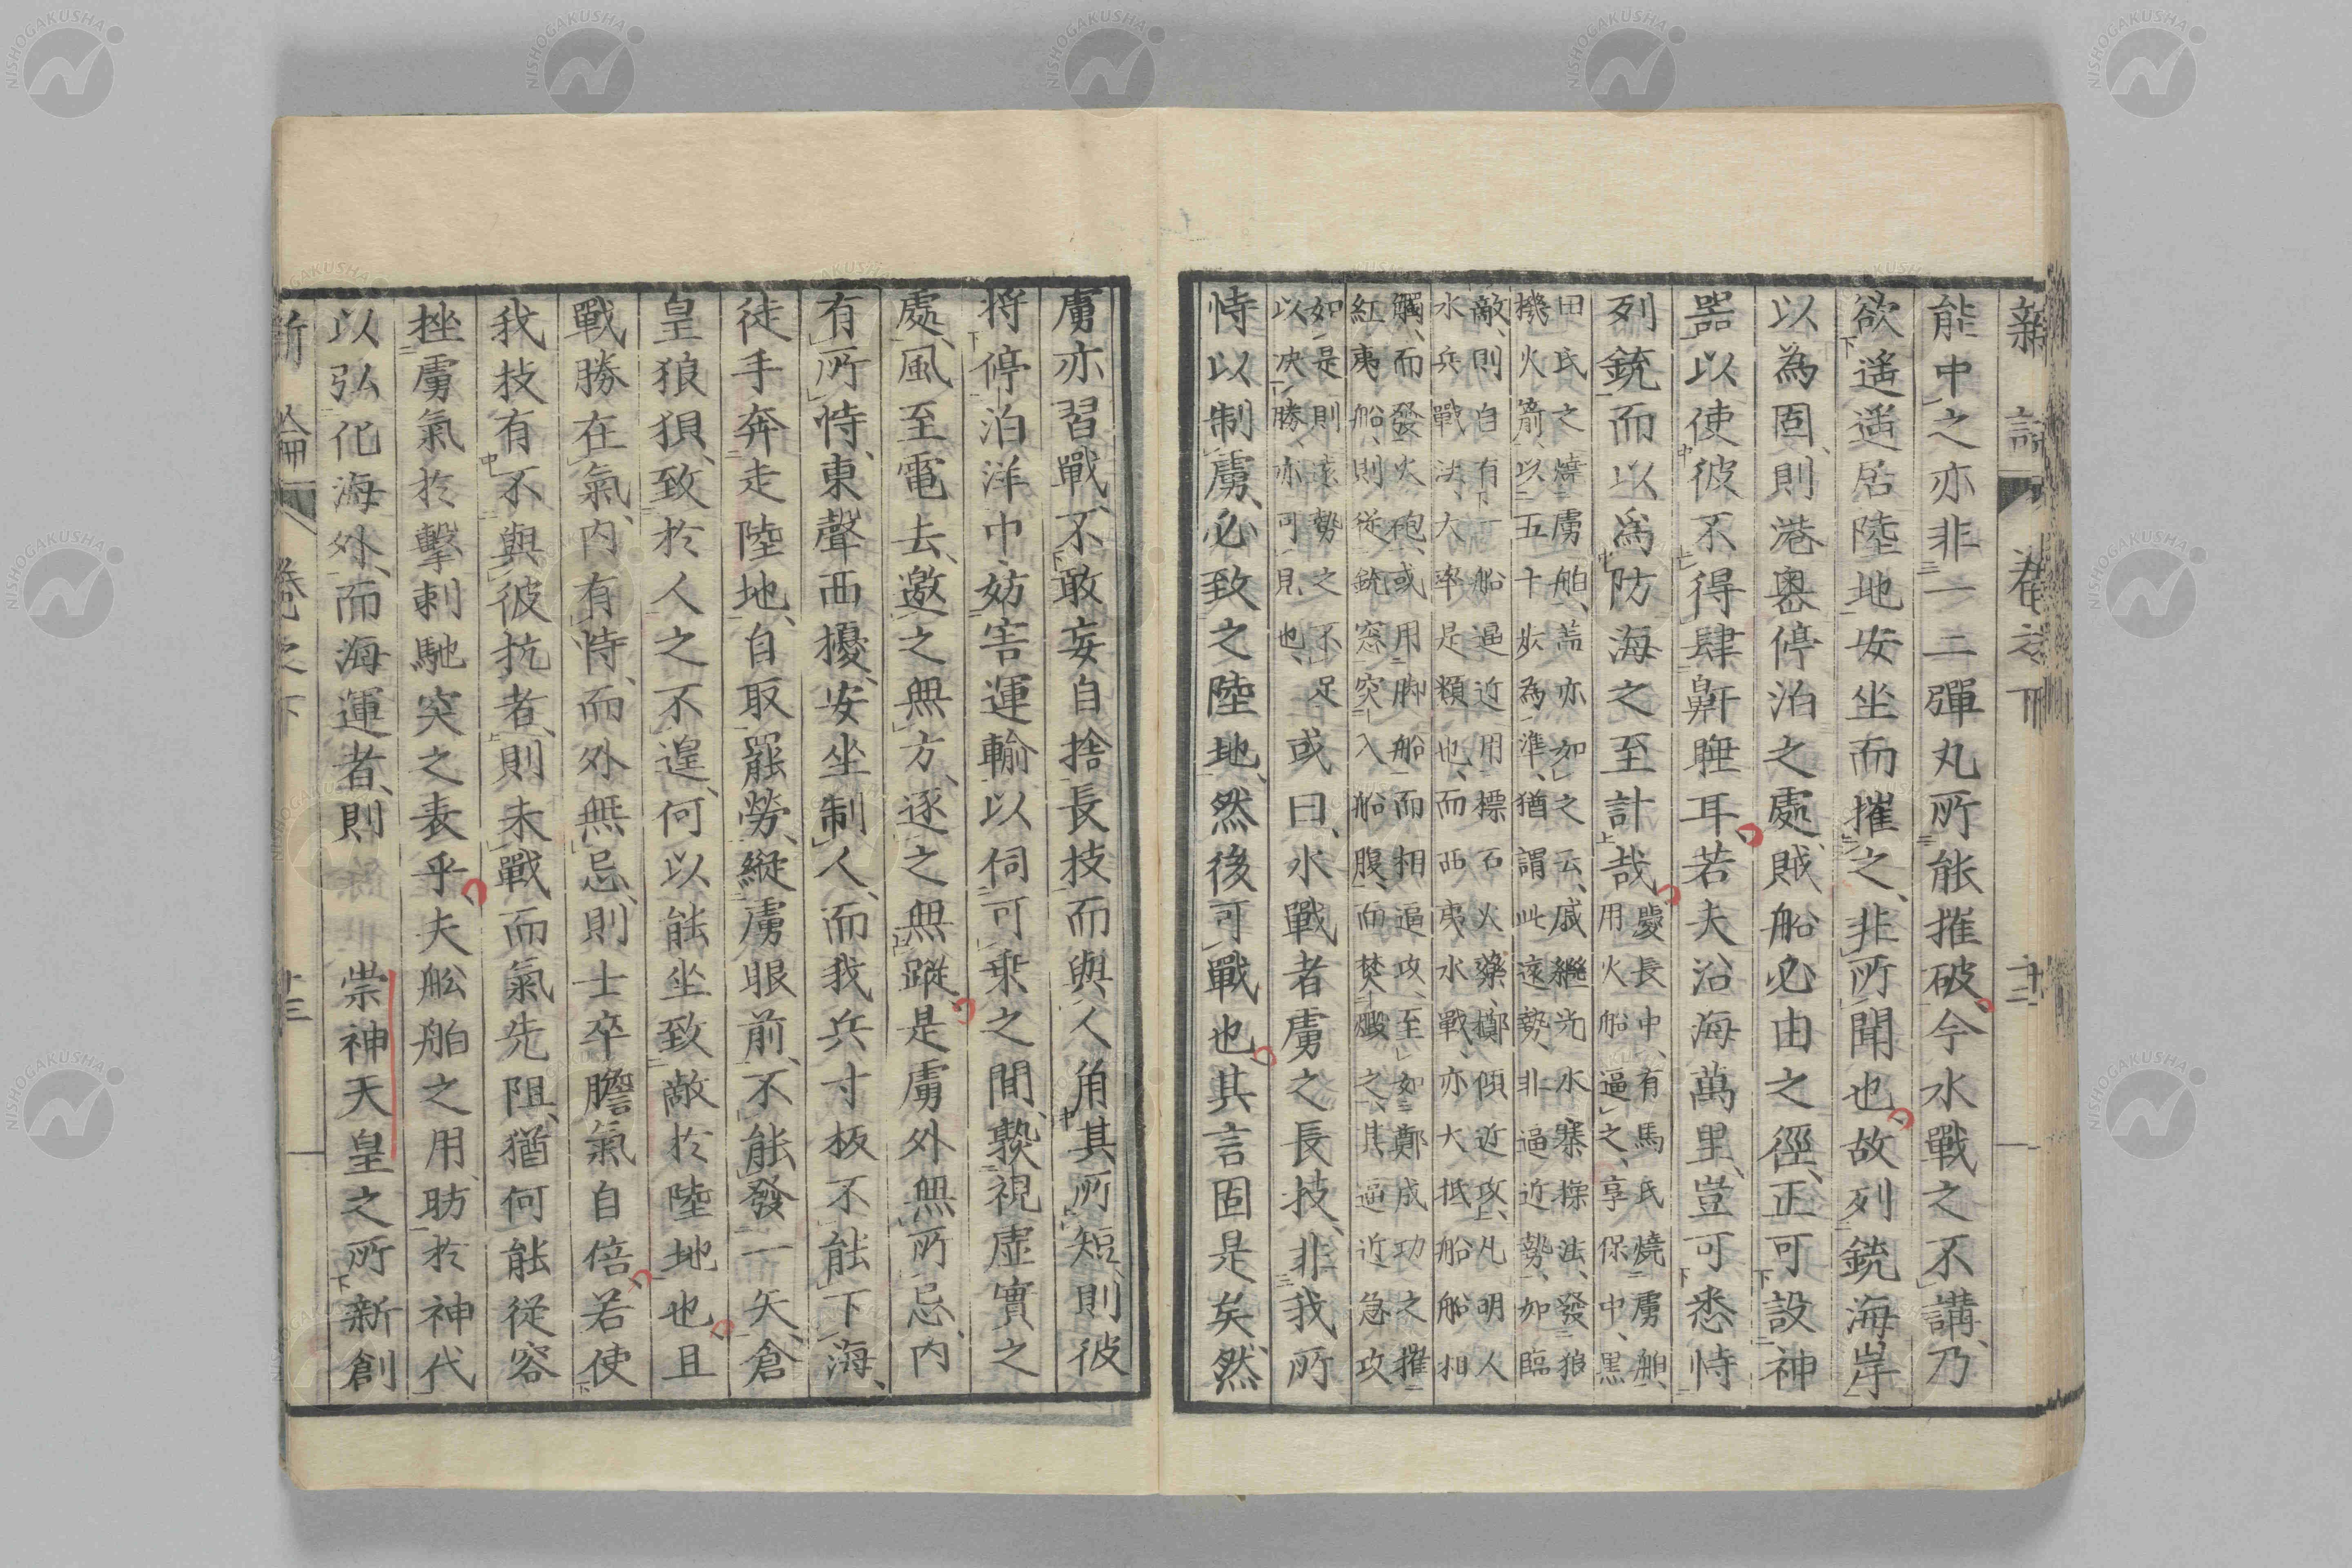 新論　卷之下　十二
能中之亦非一二彈丸所能摧破今水戰之不講、乃
欲遙遥居陸地安坐而摧之、非所聞也故列銃海岸
以為固、則港嶴停泊之處、賊船必由之徑、正可設神
器以使彼不得肆鼾睡耳若夫沿海萬里、豈可悉恃
列銃而以爲防海之至計哉
慶長中、有馬氏燒虜舶、
用火船逼之、享保中、黒
田氏之燒虜舶、盖亦如之云、戚繼光水寨操法、發狼
機火箭、以五十步為準、猶謂此遠勢、非逼近勢、如臨
敵、則自有船逼近用標石火藥、擲傾近攻、凡明人
水兵戰法大率是類也、而西夷水戰、亦大抵船船相
觸、而發火砲、或用脚船而相逼攻、至如鄭成功之摧
紅夷船、則従銃窓突入船腹、而焚殲之、其逼近急攻
如是、則遠勢之不足
以决勝、亦可見也、
或曰、水戰者虜之長技、非我所
恃以制虜、必致之陸地、然後可戰也其言固是矣、然
虜亦習戰、不敢妄自捨長技而與人角其所短、則彼
将停泊洋中、妨害運輸以伺可乘之間、覘視虛實之
處、風至電去、邀之無方、逐之無蹤是虜外無所忌、内
有所恃、東聲西擾、安坐制人、而我兵寸板不能下海、
徒手奔走陸地、自取罷勞、縦虜眼前、不能發一矢、倉
皇狼狽、致於人之不遑、何以能坐致敵於陸地也且
戰勝在氣、内有恃、而外無忌、則士卒膽氣自倍若使
我技有不與彼抗者、則未戰而氣先阻、猶何能従容
挫虜氣於擊刺馳突之表乎夫舩舶之用、昉於神代
以弘化海外、而海運者、則　崇神天皇之所新創
新論　卷之下　十三